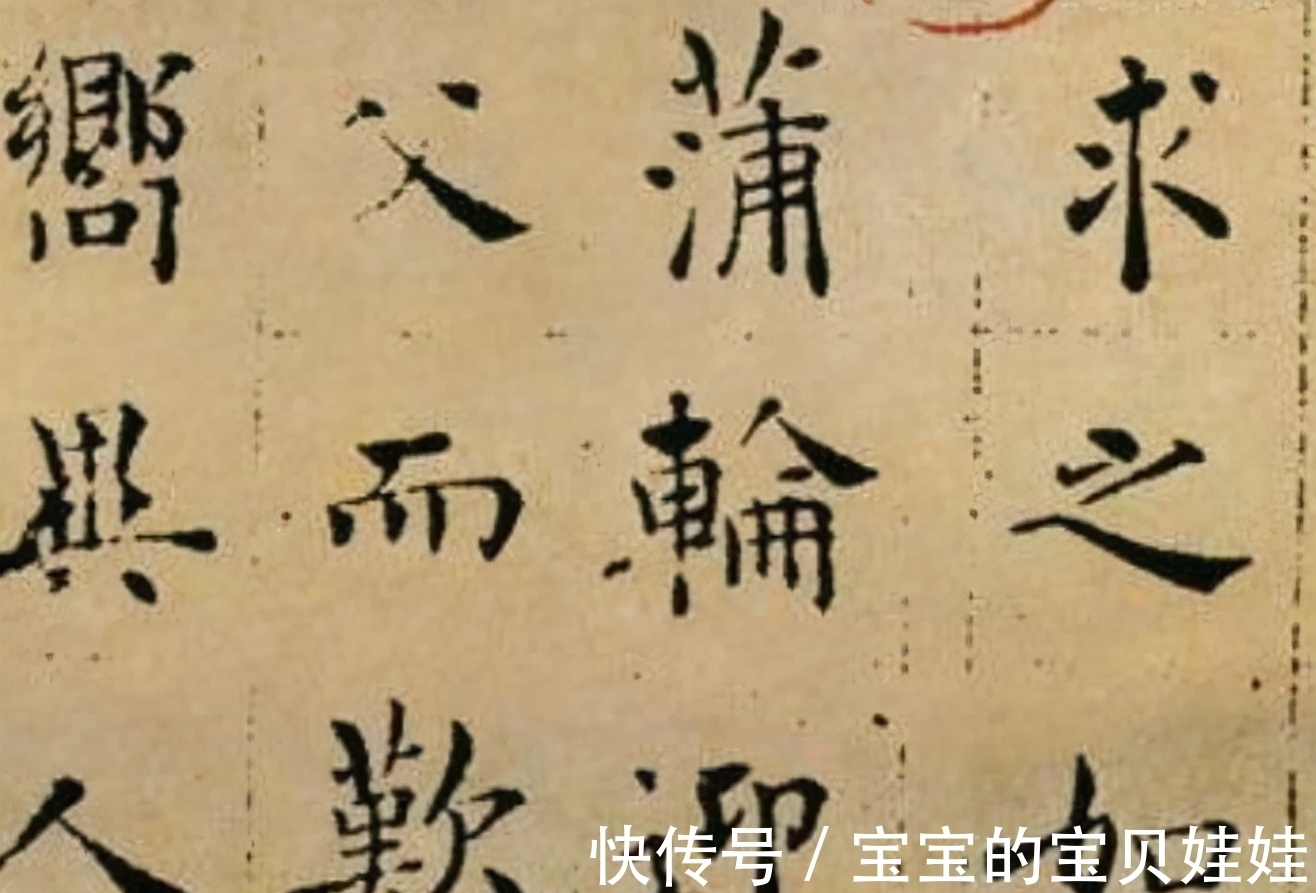 求之如
蒲輪迎
父而歎
嚮異人
快传号 / 宝宝的宝贝娃娃